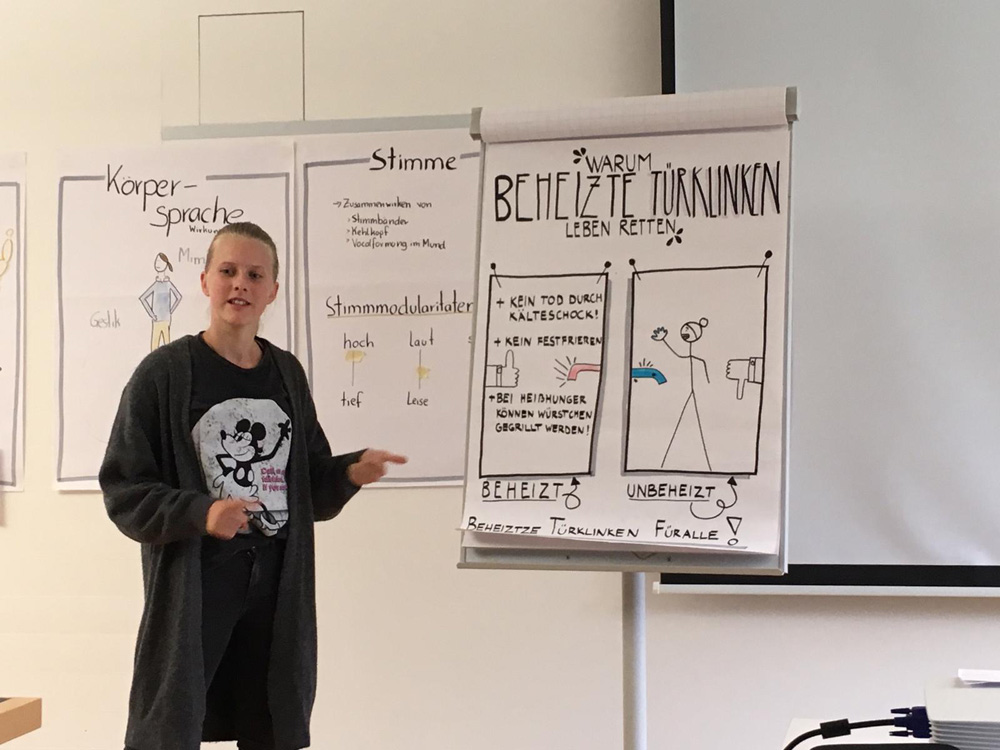 Körper-
sprache
Gestik
Stimme
→ Zusammenwirken von
Stimmbänder
Kehlkopf
Vocalformung im Mund
Stimmmodularitäten
hoch
Laut
tief
Leise
WARUM
BEHEIZTE TÜRKLINKEN
LEBEN RETTEN
+ KEIN TOD DURCH
KÄLTESCHOCK!
+ KEIN FESTFRIEREN
+ BEI HEIßHUNGER
KÖNNEN WÜRSTCHEN
GEGRILLT WERDEN!
BEHEIZT
UNBEHEIZT
BEHEIZTZE TÜRKLINKEN FÜR ALLE!